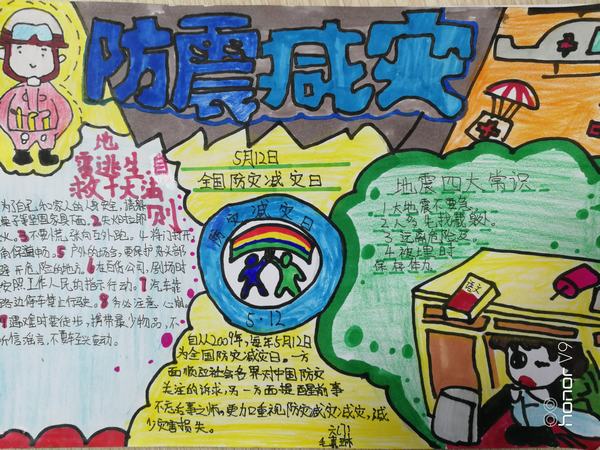 防震减灾
地
震逃生自
救十大法
则
为自己和家人的人身安全,请躲
桌子等坚固家具面。2.失火时立即
火。3.不要慌张向户外跑。4.将门打开
确保通畅。5.户外的场合,要保护好头部
避开危险的地方。6.在百货公司,剧场时
按照工作人员的指示行动。7.汽车靠
路边停车禁止行驶。8.务必注意,山崩
9.避难时要徒步,携带最少物品,不
听信谣言,不要轻举妄动。
5月12日
全国防灾减灾日
防灾减灾日
5·12
自从2009年,每年5月12日
为全国防灾减灾日。一方
面顺应社会各界对中国防灾
关注的诉求,另一方面提醒前事
不忘后事之师,更加重视防灾减灾,减
少灾害损失。
地震四大常识
1.大地震不要急。
2.人多先找藏身处。
3.远离危险区。
4.被埋时
保存体力。
语文
honor V9